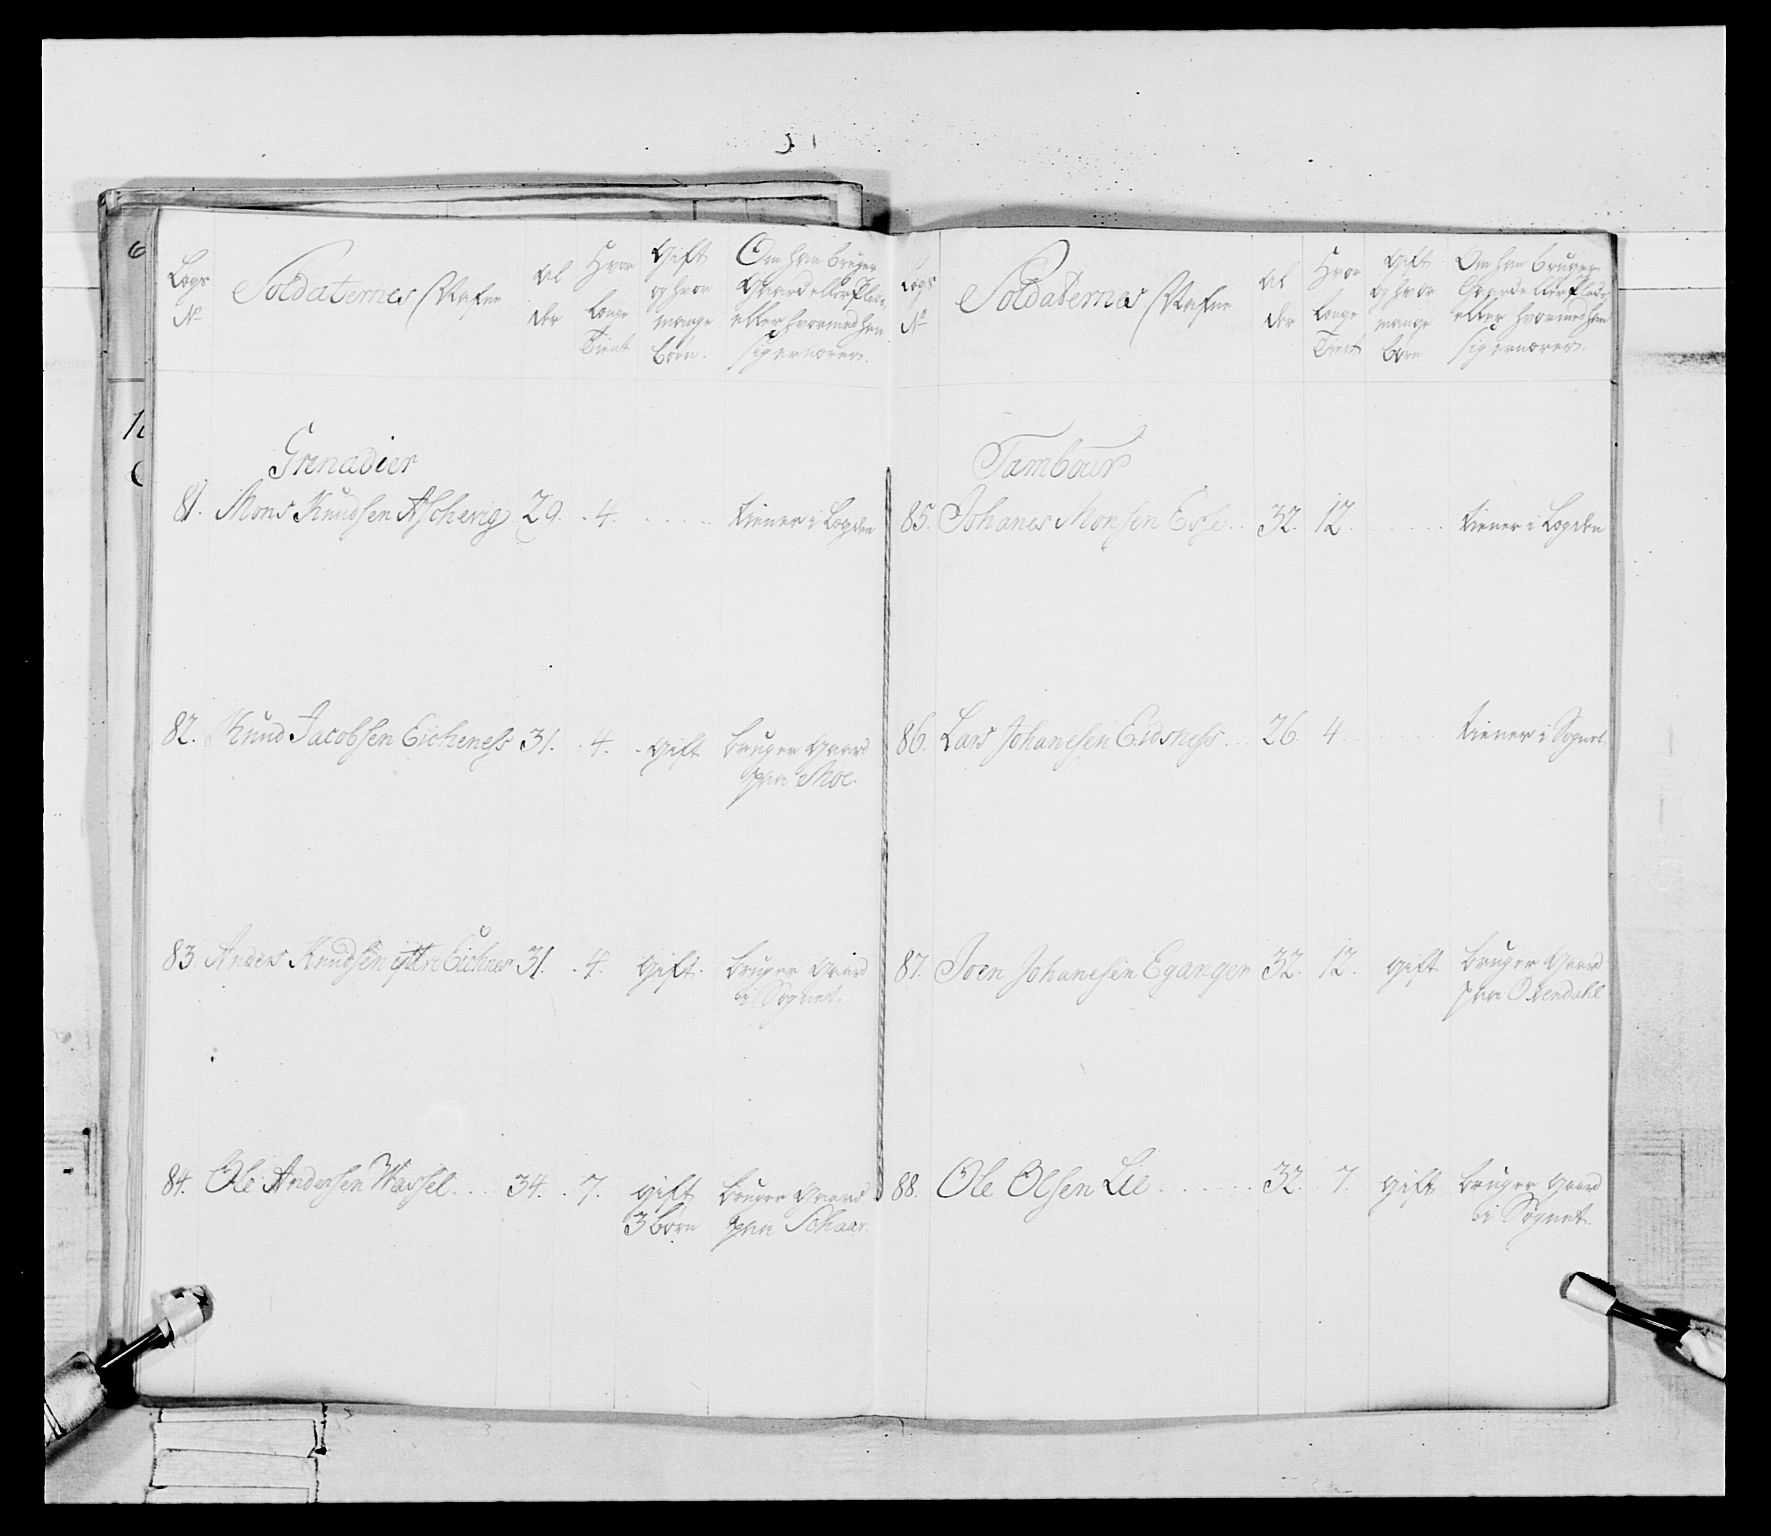 Lægs No
Soldaternes Nafne
Al der
Hvor Længe Tient
Gift og hvor mange børn.
Om han bruger Gaard eller Plads, eller hvormed han sig ernærer.
Grenadier
81. Mons Knudsen Aschevig 29. 4. tiener i Lægden
82. Knud Jacobsen Eicheness 31. 4. gift bruger gaard
paa Moe.
83. Anders Knudsen yttre Eichnes 31. 4. gift. bruger gaard
i Sognet.
84. Ole Andersen Wassel 34. 7. gift bruger gaard
3 børn paa Schaar.
Lægs No
Soldaternes Nafne
Al der
Hvor Længe Tient
Gift og hvor mange børn
Om han bruger Gaard eller Plads, eller hvormed han sig ernærer.
Tambour
85. Johanes Monsen Esse 32. 12. tiener i Lægden
86. Lars Johanesen Eidsness 26. 4. tiener i Sognet
87. Joen Johanesen Eganger 32. 12. gift bruger Gaard
paa Oxendahl
88. Ole Olsen Lie 32. 7. gift bruger gaard
i Sognet.